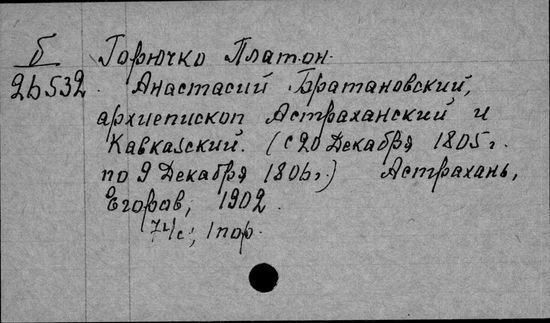 Б Горючко Платон.
26532 Анастасий Братановский,
архиепископ Астраханский и
Кавказский. (с 20 Декабря 1805 г.
по 9 Декабря 1806 г.) Астрахань,
Егоров, 1902.
74 с; 1 пор.